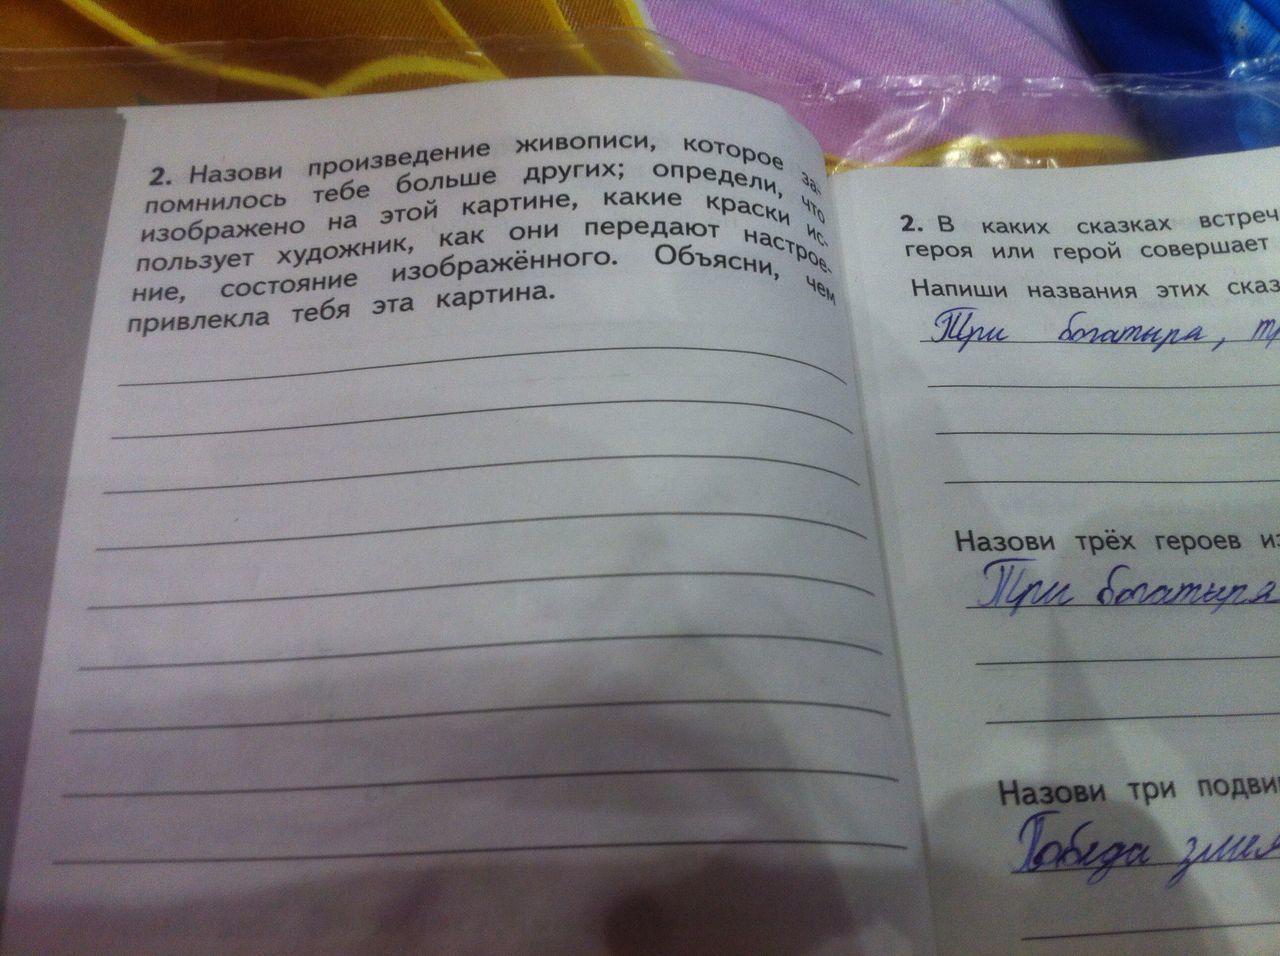 2. Назови произведение живописи, которое за-
помнилось тебе больше других; определи, что
изображено на этой картине, какие краски ис-
пользует художник, как они передают настрое-
ние, состояние изображённого. Объясни, чем
привлекла тебя эта картина.
2. В каких сказках встреч
героя или герой совершает
Напиши названия этих сказ
Три богатыра, тр
Назови трёх героев из
Три богатыря
Назови три подви
Победа змея